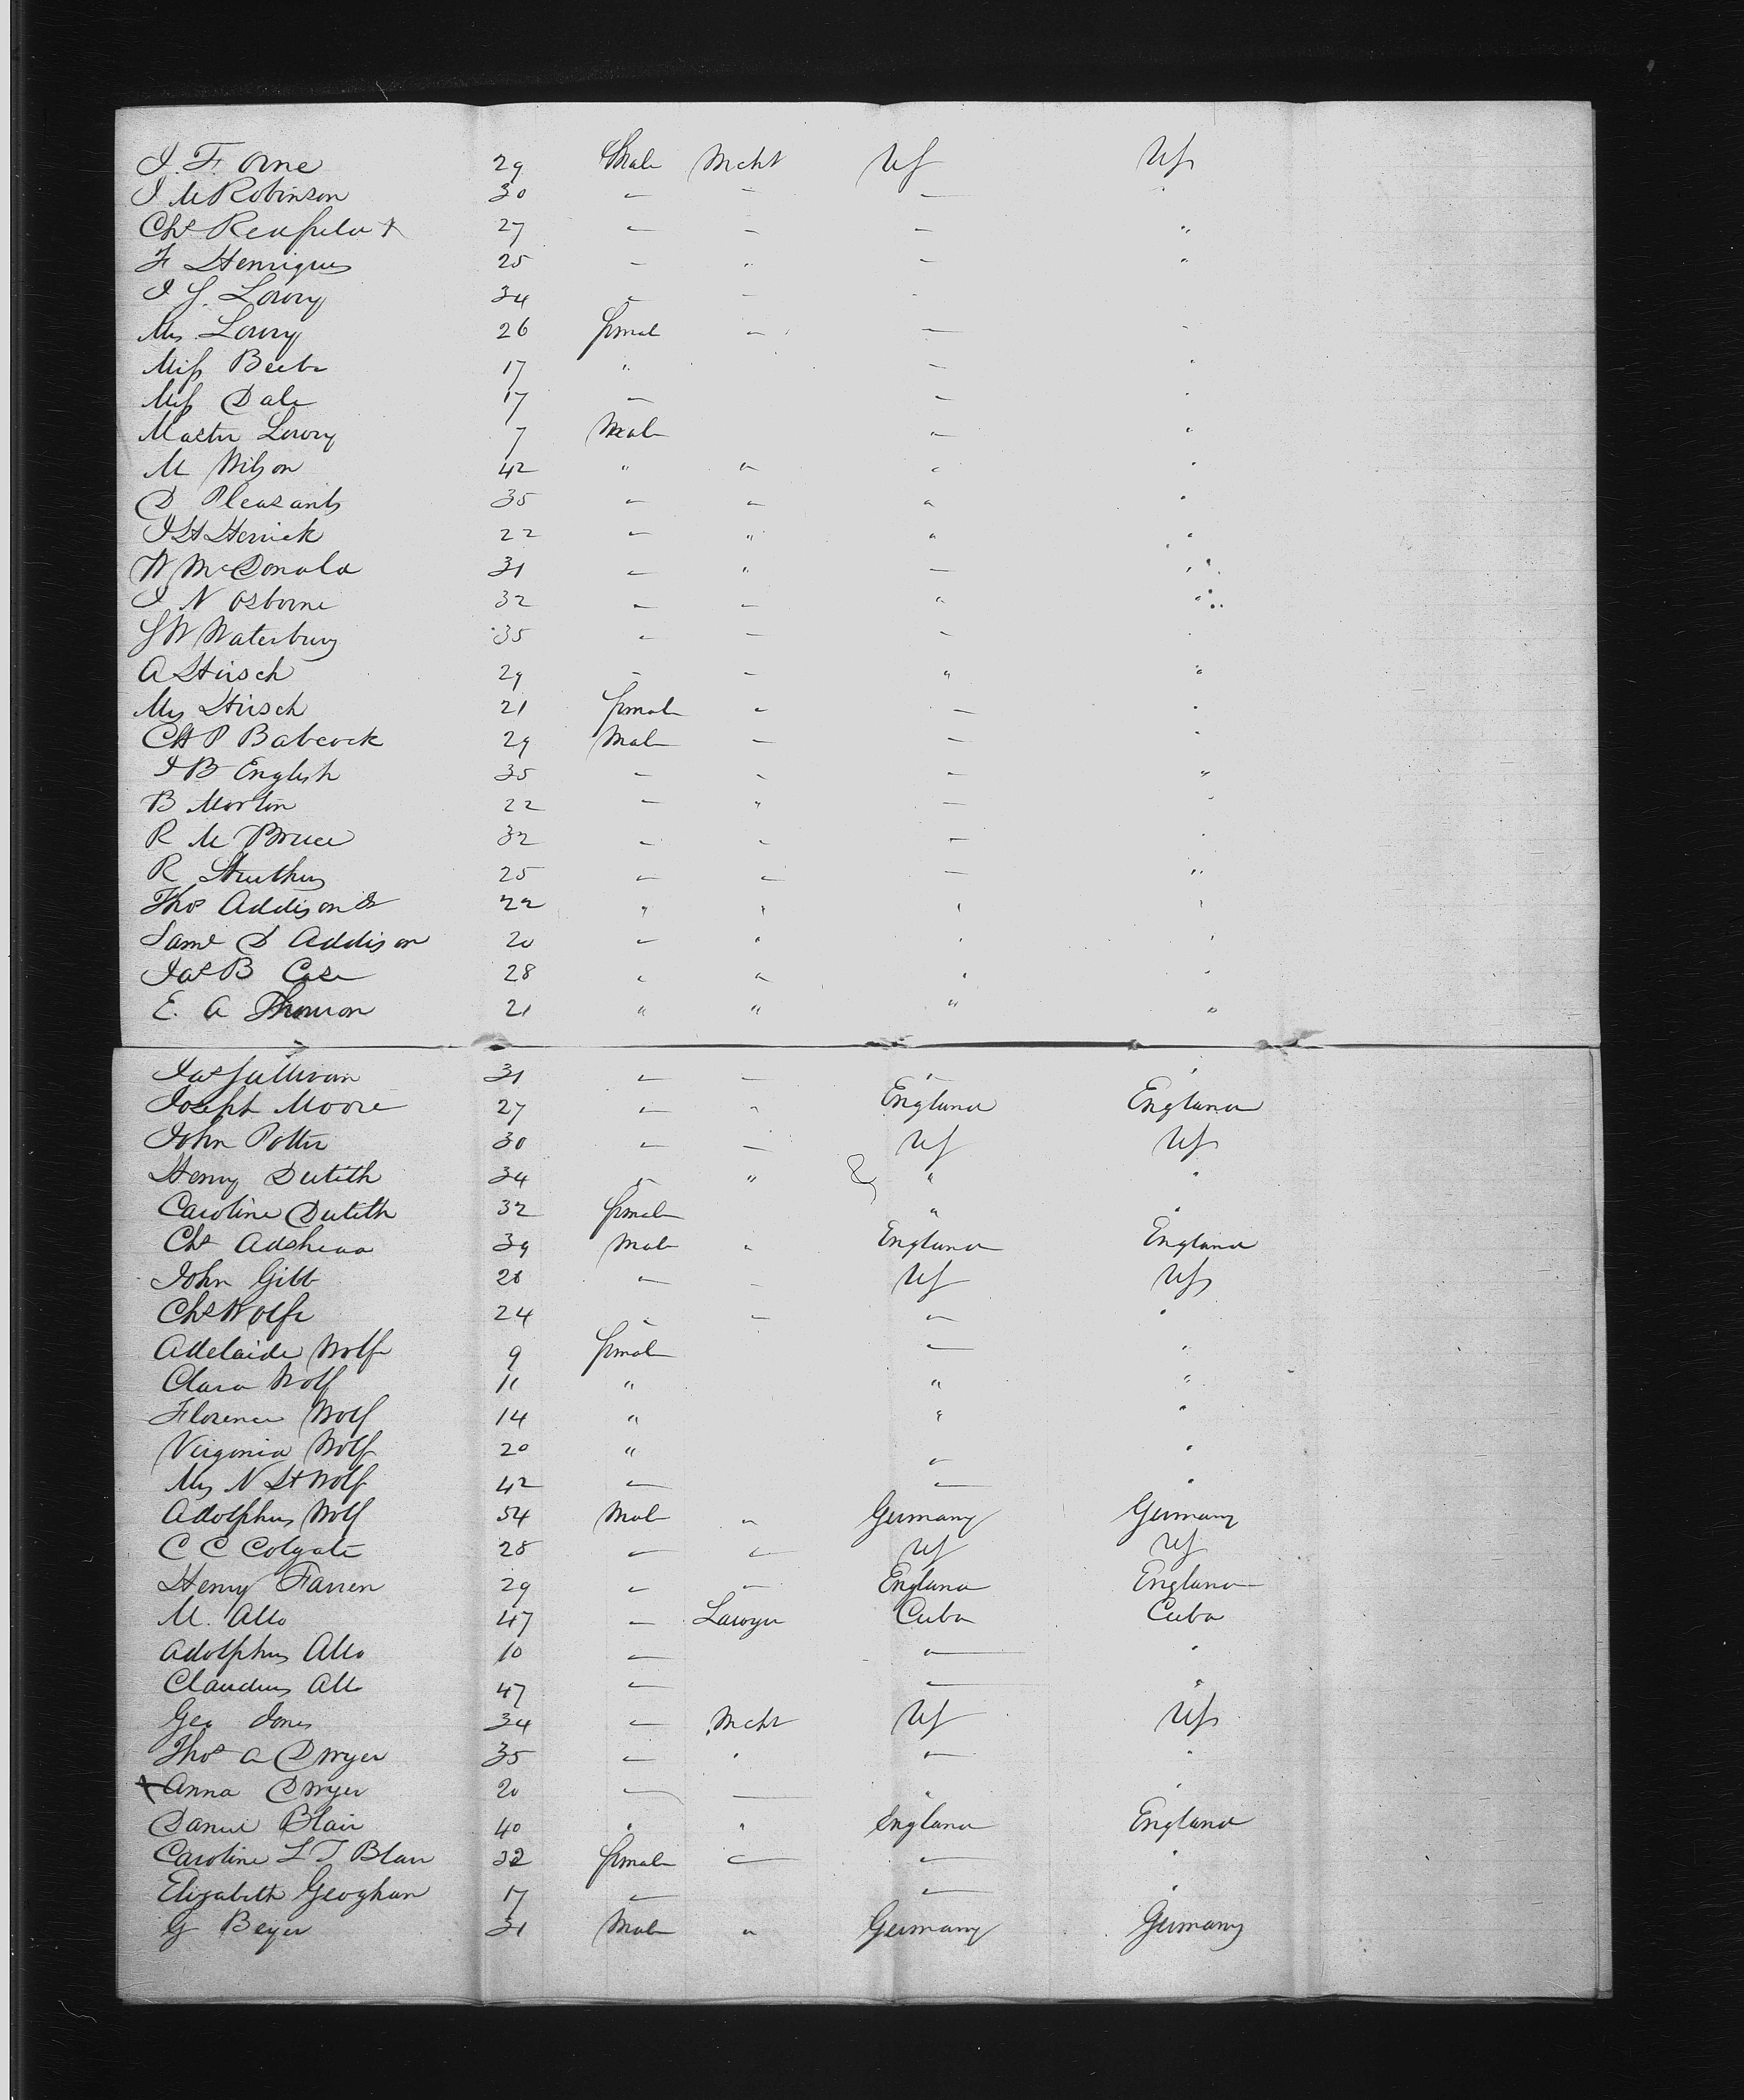 J. F. Orne 29 Male Mcht US US
J M Robinson 30 — — —
Chs 27 — — — "
F Henriques 25 — " — "
J S. Lowry 34 — — -
Mrs Lowry 26 female — — -
Miss Beebe 17 " — "
Miss Dale 17 — — "
Master Lowry 7 Male — "
M Wilson 42 " " " "
D Pleasants 35 — — " "
J H Herrick 22 — " " "
W McDonald 31 — " — "
J N Osborne 32 — — " "
S W Waterbury 35 — — —
A Hirsch 29 — — " "
Mrs Hirsch 21 female — — "
CH P Babcock 29 Male — — "
J B English 35 — — — "
B Morton 22 — " — "
R M Bruce 32 — — — "
R Struthers 25 — — — "
Thos Addison 22 " " " "
Saml D Addison 20 — " " "
Jas B Case 28 " " " "
E. A Thomson 21 " " " "
Jas Sullivan 31 — — — "
Joseph Moore 27 — " England England
John Potter 30 — — US US
Henry Duteth 34 — " " "
Caroline Duteth 32 female " "
Chs Adshead 39 Male " England England
John Gibb 28 — — US US
Chs Wolfe 24 — — — "
Adelaide Wolfe 9 female — "
Clara Wolf 11 " " "
Florence Wolf 14 " " "
Virginia Wolf 20 " — "
Mrs N H Wolf 42 — — "
Adolphus Wolf 54 Male " Germany Germany
C C Colgate 28 — — US US
Henry Farren 29 — — England England
M. Allo 47 — Lawyer Cuba Cuba
Adolphus Allo 10 — — "
Claudius Allo 47 — — "
Geo Jones 34 — Mcht US US
Thos A Dwyer 35 — " — "
x Anna Dwyer 20 — — " "
Daniel Blair 40 " " England England
Caroline L T Blair 32 female — — "
Elizabeth Geoghan 17 — — "
G Beyer 31 Male " Germany Germany